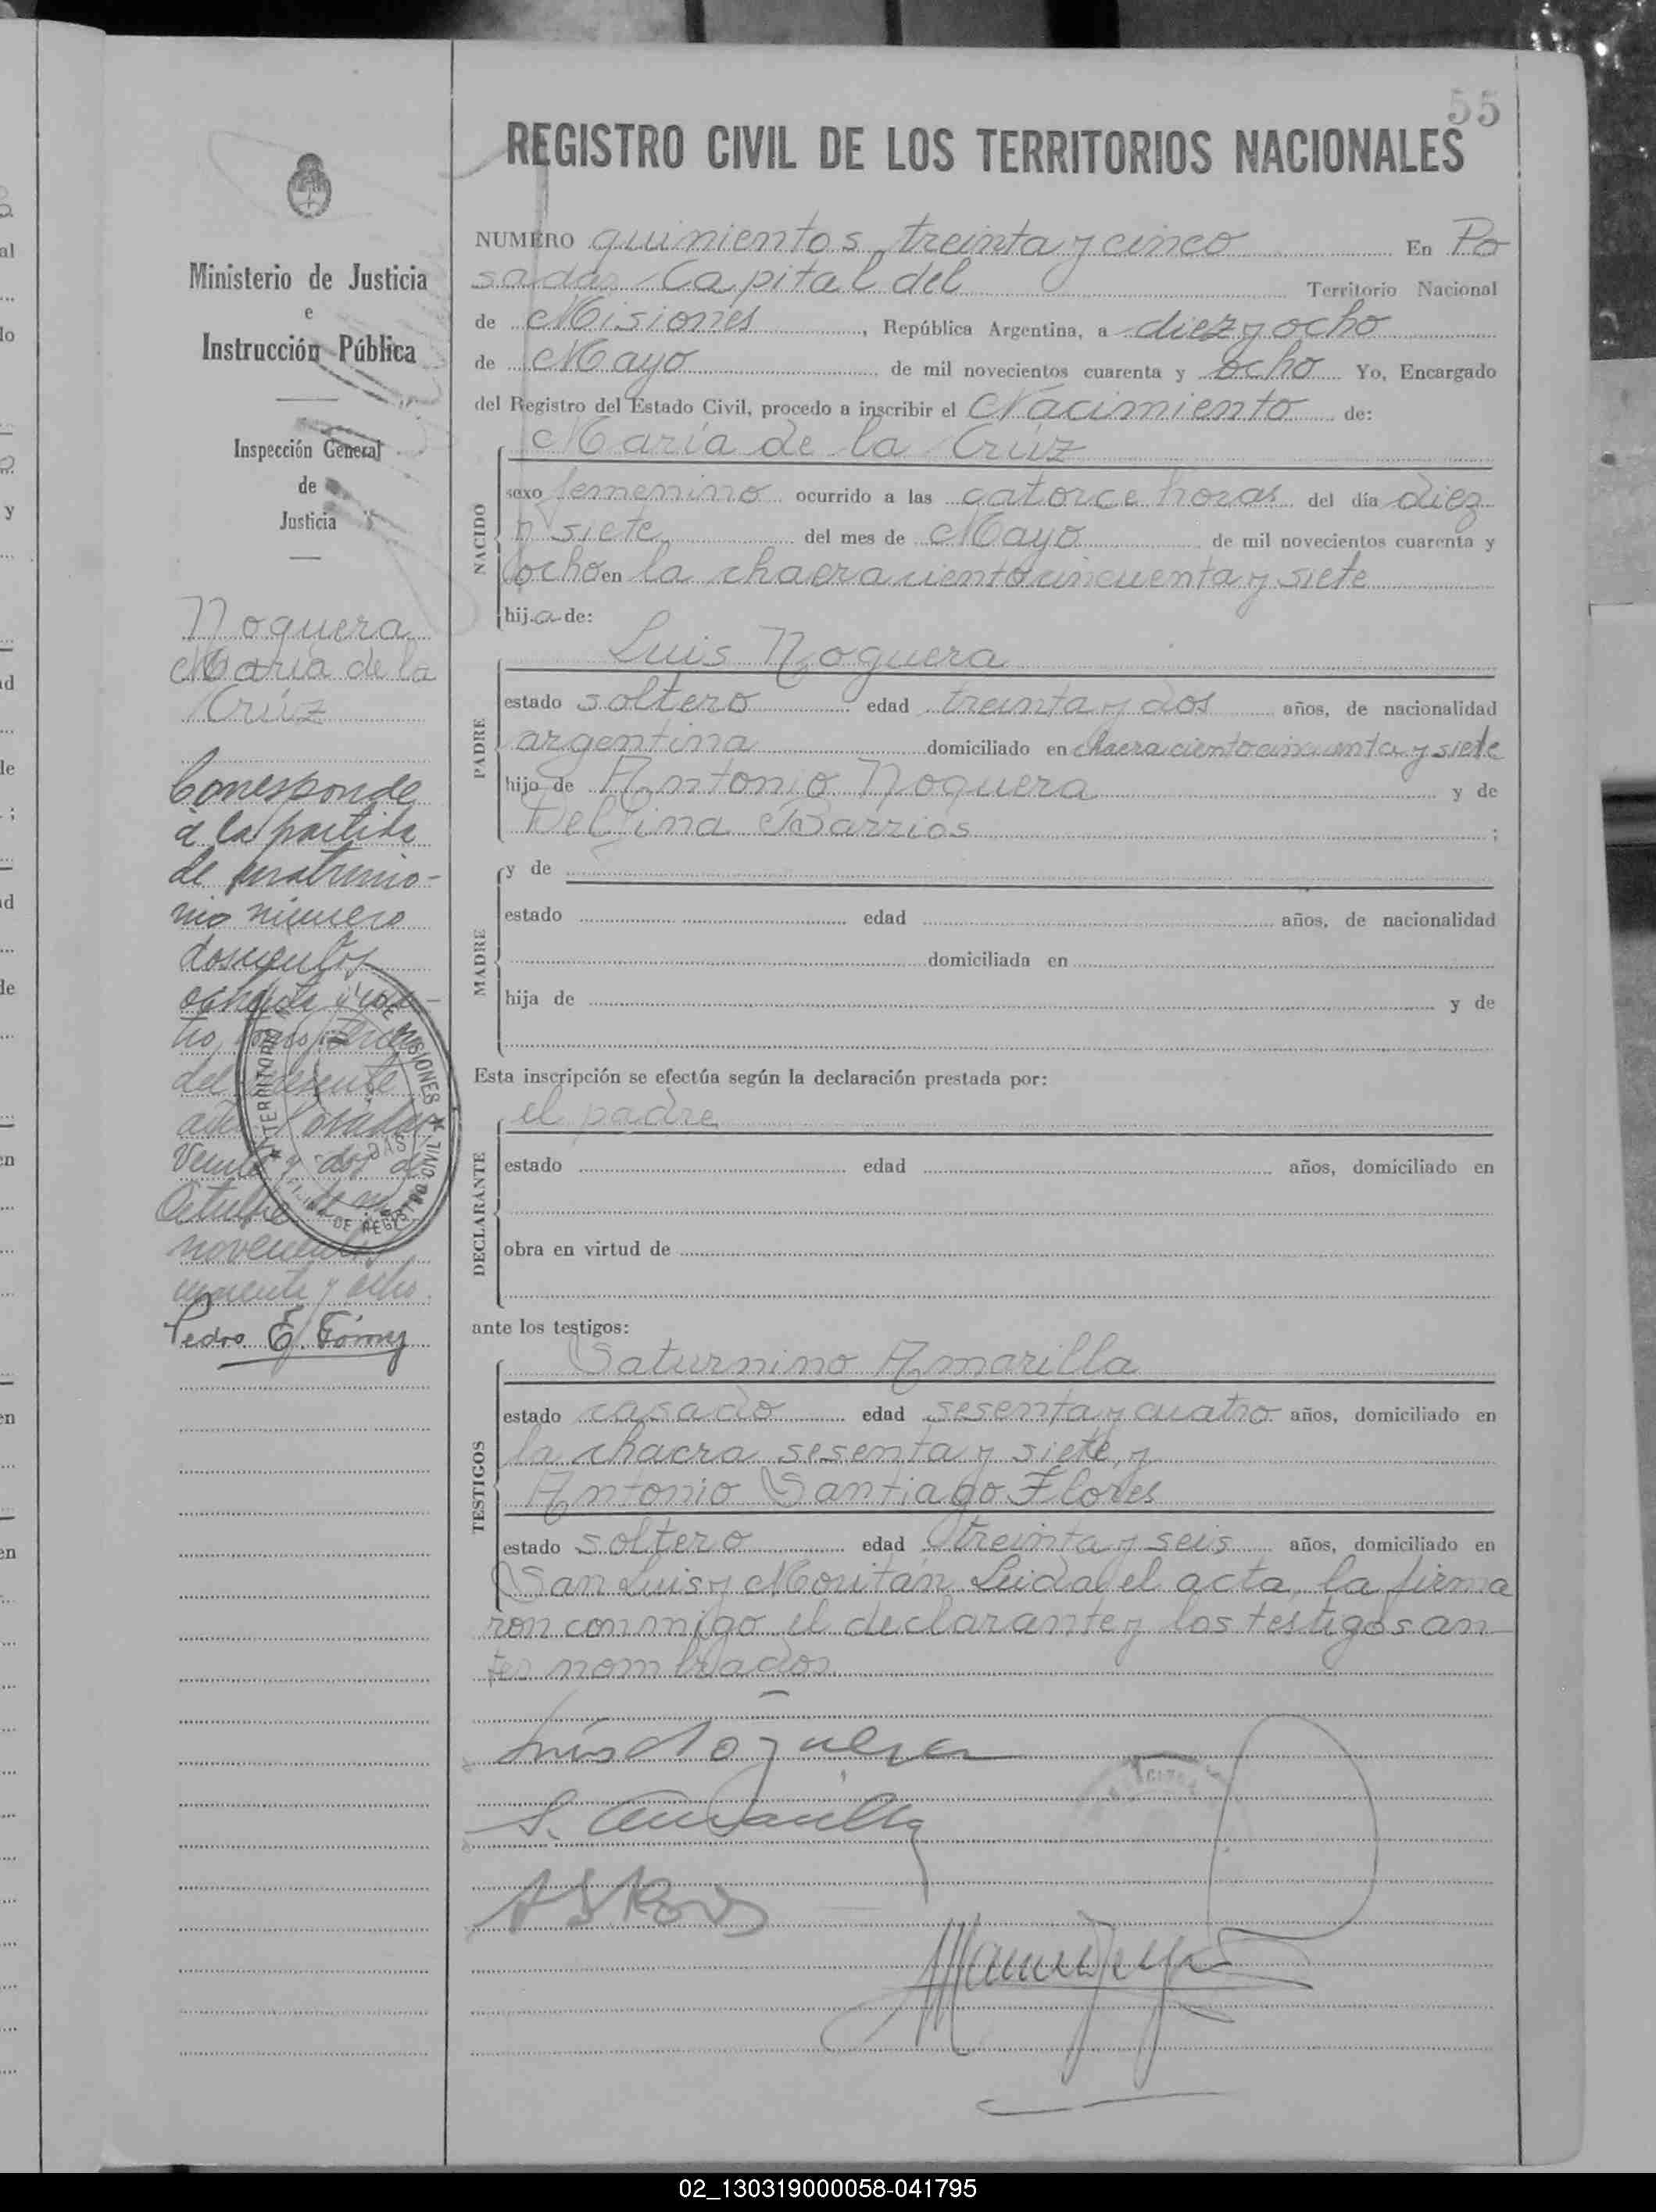 55
REGISTRO CIVIL DE LOS TERRITORIOS NACIONALES
Ministerio de Justicia
e
Instrucción Pública
Inspección General
de
Justicia
Noguera
María de la
Crúz
Corresponde
a la partida
de matrimo-
nio número
doscientos
ochenta y cua-
tro, tomo
del presente
año Posadas
Veinte y dos de
Octubre de mil
novecientos
cuarenta y ocho.
Pedro E. Gómez
TERRITORIO DE MISIONES
DE REGISTRO CIVIL
NUMERO quinientos treinta y cinco En Po
sadas Capital del Territorio Nacional
de Misiones, República Argentina, a diez y ocho
de Mayo de mil novecientos cuarenta y ocho Yo, Encargado
del Registro del Estado Civil, procedo a inscribir el Nacimiento de:
NACIDO
María de la Crúz
sexo femenino ocurrido a las catorce horas del día diez
y siete del mes de Mayo de mil novecientos cuarenta y
ocho en la chacra ciento cincuenta y siete
hija de:
PADRE
Luis Noguera
estado soltero edad treinta y dos años, de nacionalidad
argentina domiciliado en chacra ciento cincuenta y siete
hijo de Antonio Noguera y de
Delfina Barrios ;
MADRE
y de
estado edad años, de nacionalidad
domiciliada en
hija de y de
Esta inscripción se efectúa según la declaración prestada por:
DECLARANTE
el padre
estado edad años, domiciliado en
obra en virtud de
ante los testigos:
TESTIGOS
Saturnino Amarilla
estado casado edad sesenta y cuatro años, domiciliado en
la chacra sesenta y siete, y
Antonio Santiago Flores
estado soltero edad treinta y seis años, domiciliado en
San Luis y Moritán Leida el acta, la firma
ron conmigo el declarante y los testigos an
tes nombrados
Luis Noguera
S. Amarilla
02_130319000058-041795